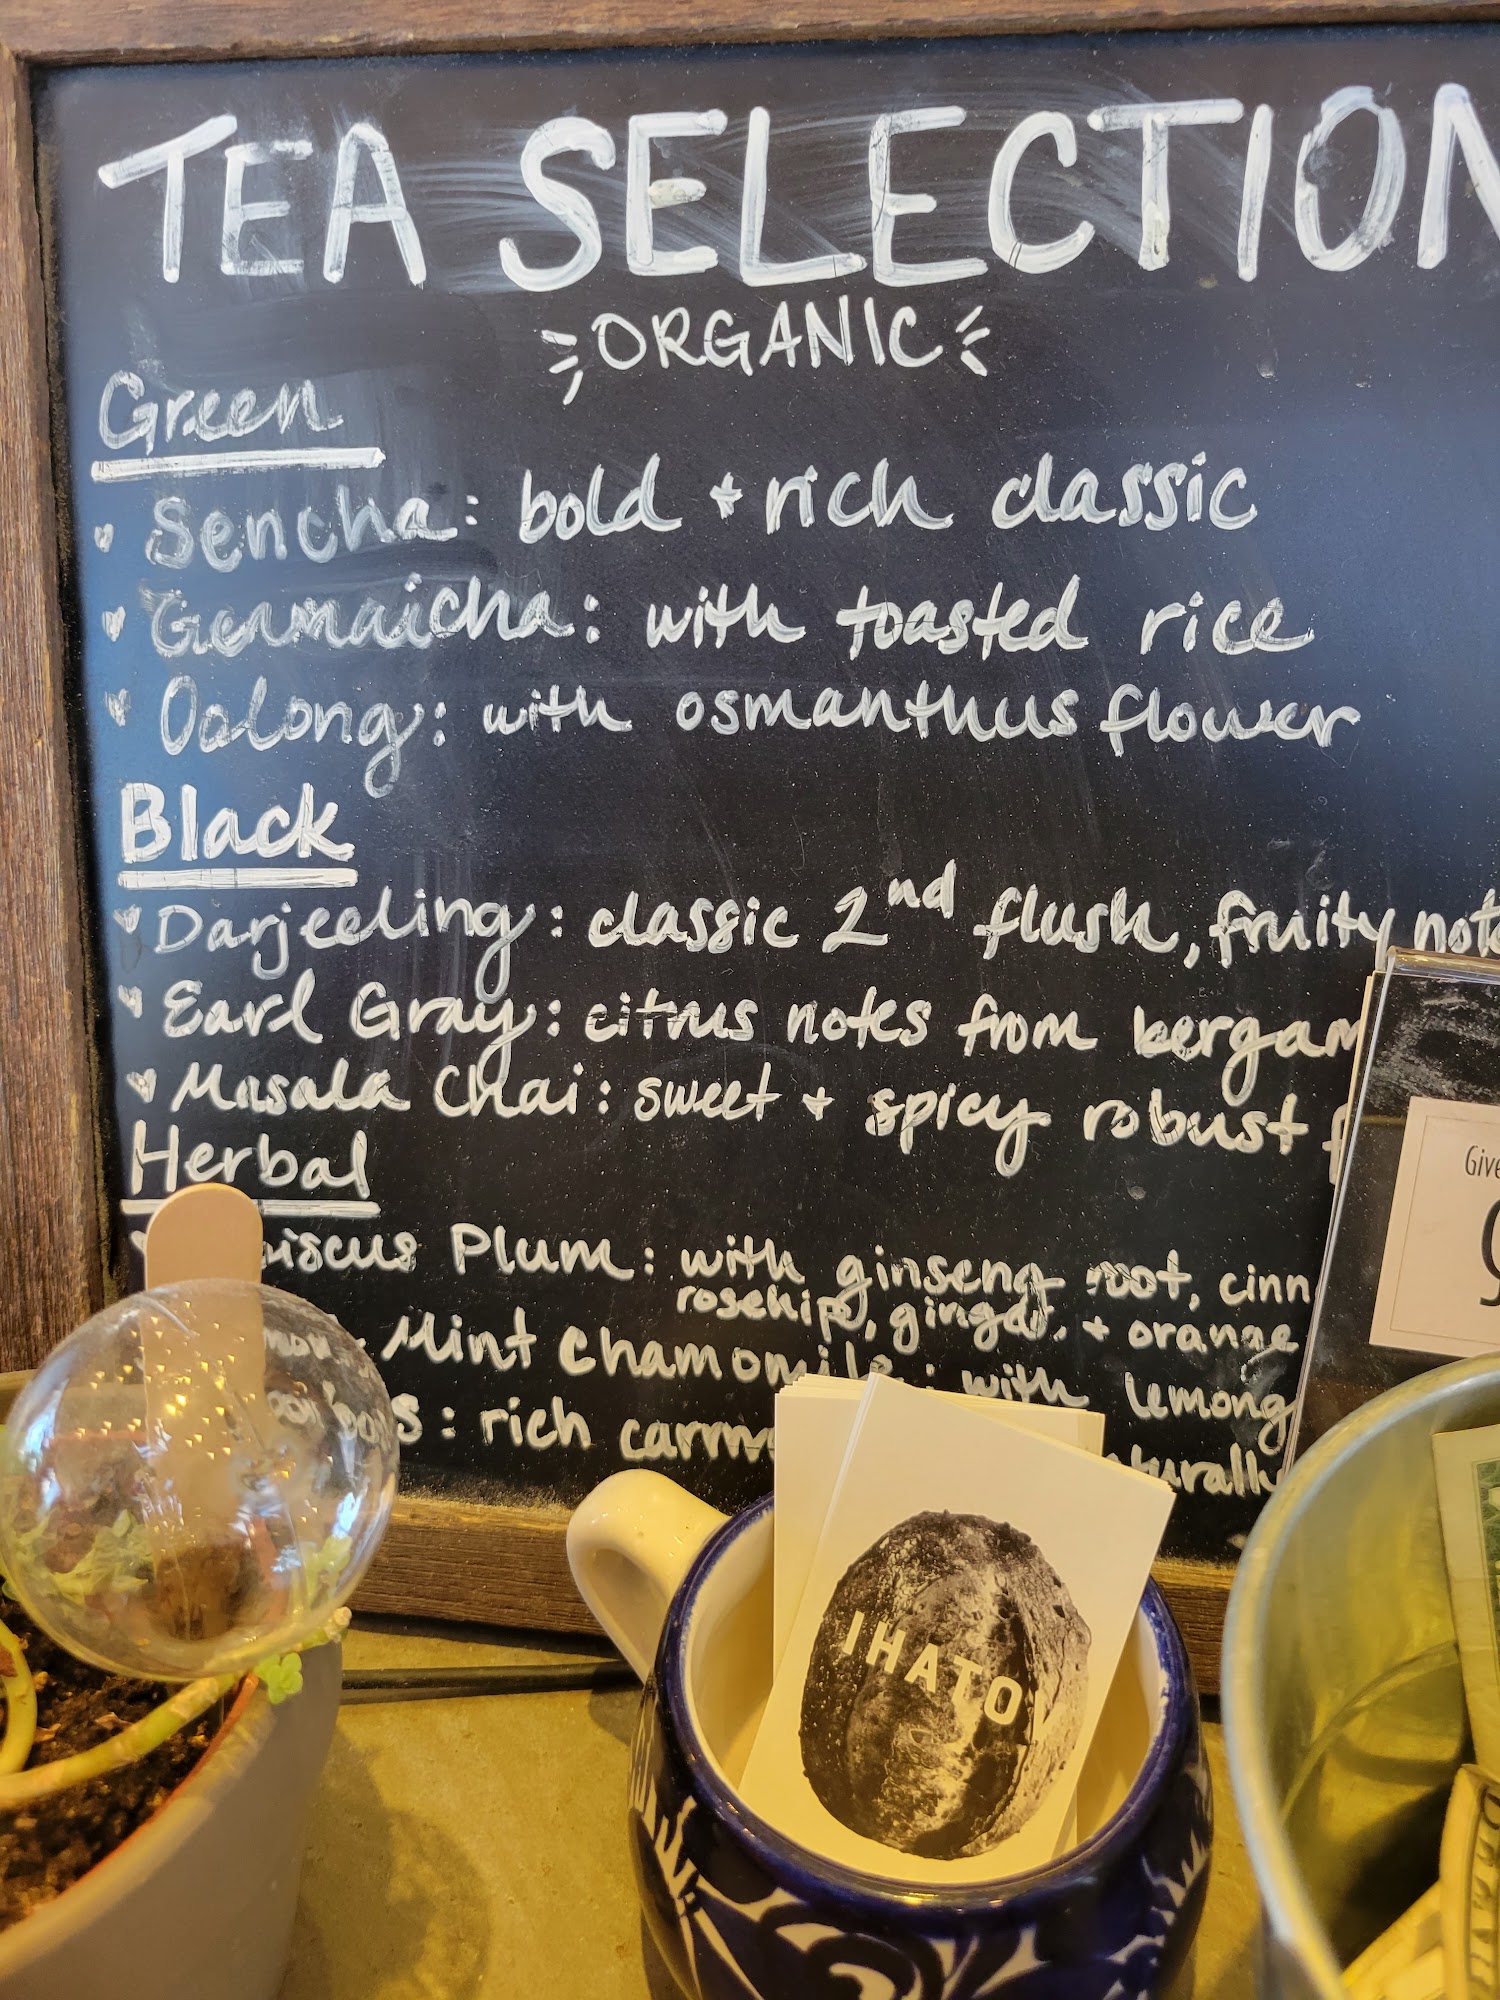 TEA SELECTION
ORGANIC
Green
Sencha: bold + rich classic
Genmaicha: with toasted rice
Oolong: with osmanthus flower
Black
Darjeeling: classic 2nd flush, fruity not
Earl Gray: citrus notes from bergam
Masala Chai: sweet + spicy robust f
Herbal
iscus Plum: with ginseng root, cinn
rosehip, ginger, + orange
Mint Chamomile: with lemong
s: rich
turally
IHATOV
Give